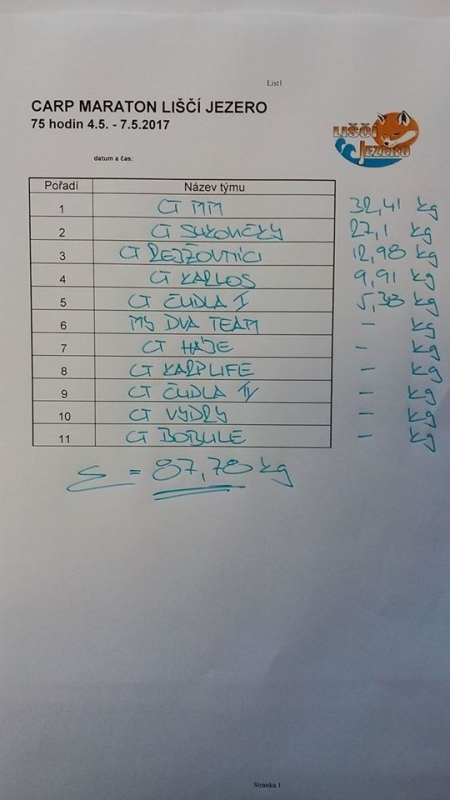 List1
CARP MARATON LIŠČÍ JEZERO
75 hodin 4.5. - 7.5.2017
LIŠČÍ
JEZERO
datum a čas:
Pořadí Název týmu
1 CT MM 32,41 kg
2 CT SUKOVČKY 27,1 kg
3 CT REJŽOVNÍCI 12,98 kg
4 CT KARLOS 9,91 kg
5 CT ČUDLA I 5,38 kg
6 MY DVA TEAM - kg
7 CT HÁJE - kg
8 CT KARPLIFE - kg
9 CT ČUDLA IV - kg
10 CT VYDRY - kg
11 CT BOBULE - kg
Σ = 87,78 kg
Stránka 1